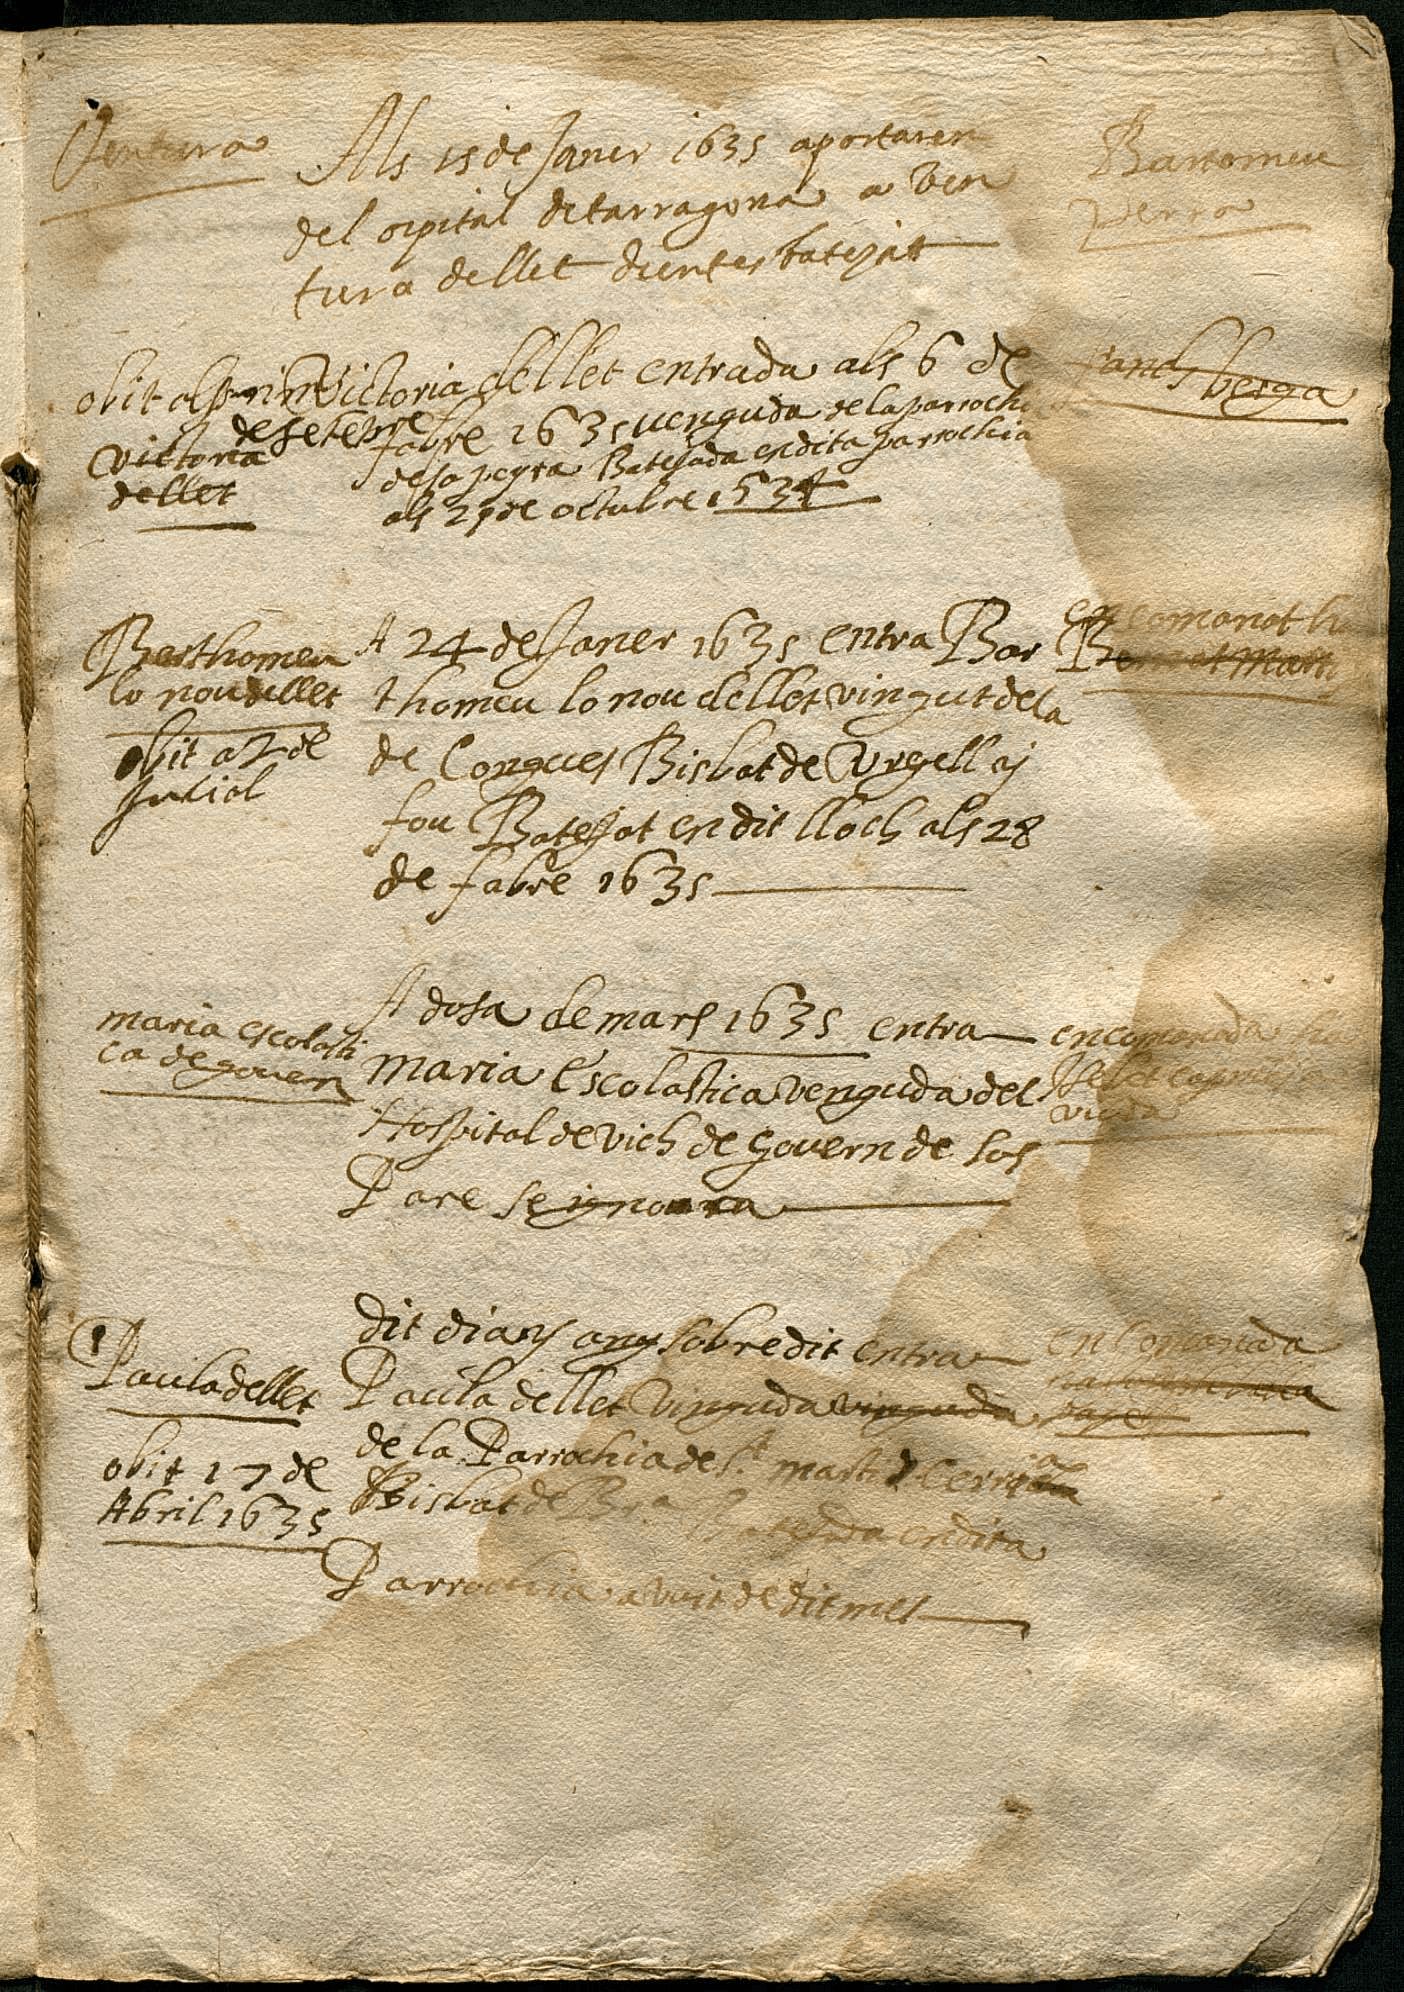 Ventura
Als 15 de Janer 1635 aportaren
del ospital de tarragona a Ven
tura de llet diuent es batejat
Bartomeu
Perro
obit als
de setebre
victoria
de llet
Victoria de llet entrada als 6 de
fabre 1635 venguda de la parrochia
de sa peyra Batejada en dita parrochia
als 29 de octubre 1634
berga
Barthomeu
lo nou de llet
obit a 2 de
Juliol
A 24 de Janer 1635 entra Bar
thomeu lo nou de llet vingut de la
de Congues Bisbat de Urgell aj
fou Batejat en dit lloch als 28
de fabre 1635
encomanat
maria escolasti
ca de govern
A dosa de mars 1635 entra
maria Escolastica venguda del
Hospital de vich de govern de sos
Pare se ignora
encomanada
viuda
Paula de llet
obit 17 de
Abril 1635
dit dia y any sobredit entra
Paula de llet vinguda vinguda
de la Parrochia de St marti
Bisbat de Bra Batejada en dita
Parrochia a vuit de dit mes
encomanada